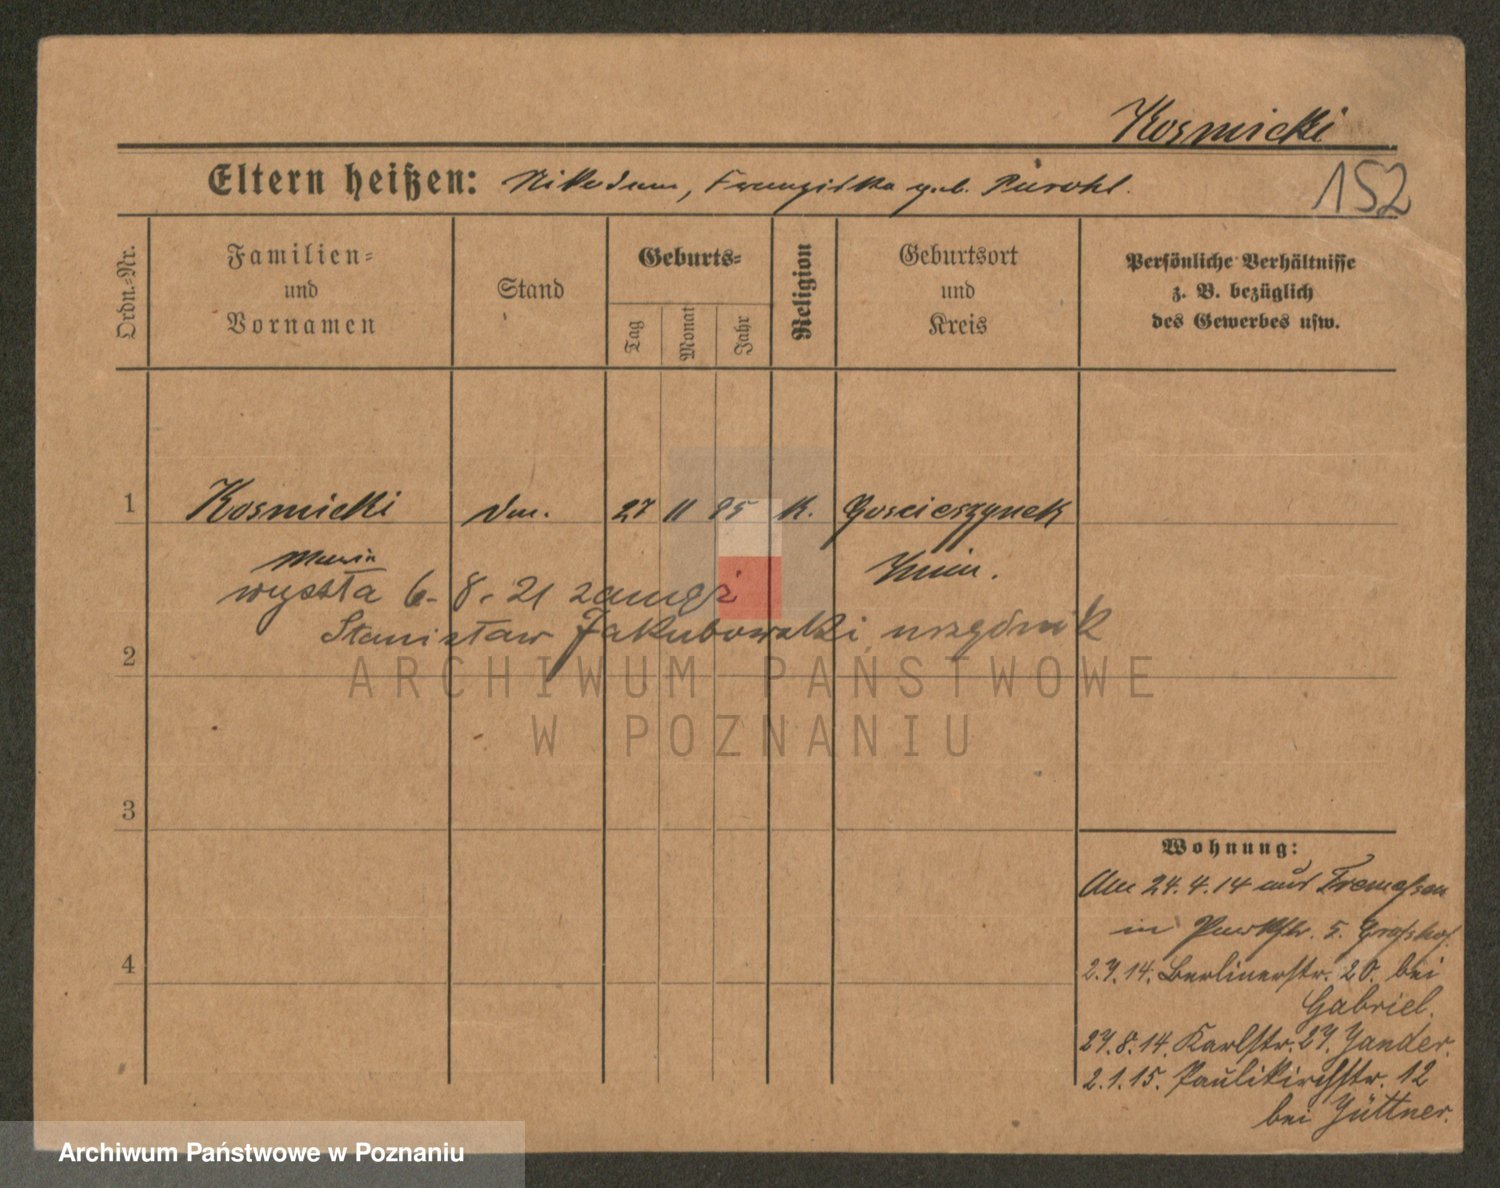 Kosmicki
152
Eltern heißen: Nikodem, Franziska geb. Purohl.
Ordn.-Nr.
Familien-
und
Vornamen
Stand
Geburts-
Tag
Monat
Jahr
Religion
Geburtsort
und
Kreis
Persönliche Verhältnisse
z. B. bezüglich
des Gewerbes usw.
1 Kosmicki 27 11 95 K. Goscieszynek
Maria Znin.
wyszła 6.8.21 zamęż
2 Stanisław Jakubowski urzędnik
ARCHIWUM PAŃSTWOWE
W POZNANIU
3
4
Wohnung:
Am 24.4.14 aus Tremessen
in Parkstr. 5. Grosshof.
2.7.14. Berlinerstr. 20. bei
Gabriel.
27.8.14. Karlstr. 27. Zander.
2.1.15. Paulikirchstr. 12
bei Jüttner.
Archiwum Państwowe w Poznaniu